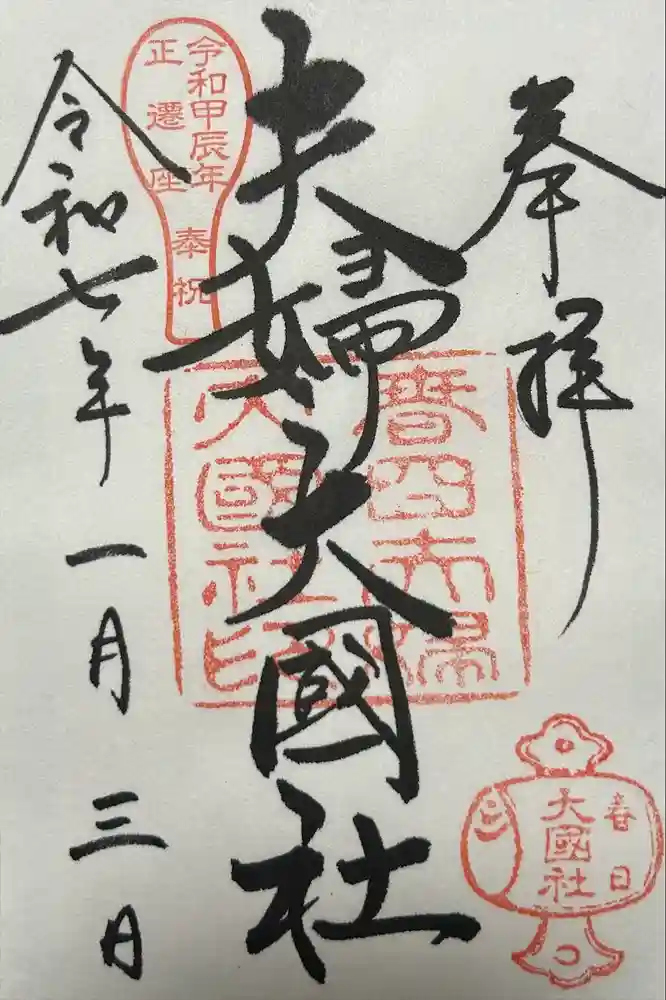 奉拝
夫婦大國社
令和七年一月三日
令和甲辰年
正遷座
奉祝
春日
大國社
大國社印